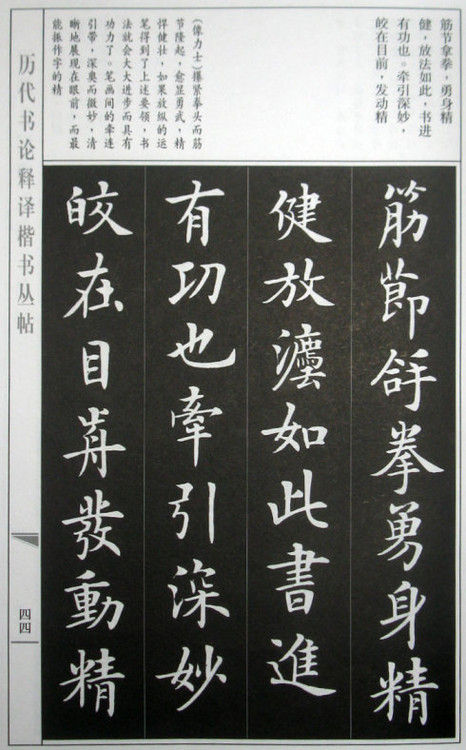 筋节拿拳，勇身精
健，放法如此，书进
有功也。牵引深妙，
皎在目前，发动精
（像力士）攥紧拳头而筋
节隆起，愈显勇武，精
悍健壮，如果放纵的运
笔得到了上述要领，书
法就会大大进步而具有
功力了。笔画间的牵连
引带，深奥而微妙，清
晰地展现在眼前，而最
能振作字的精
筋節拿拳勇身精
健放灋如此書進
有功也牽引深妙
皎在目歬發動精
历代书论释译楷书丛帖
四四